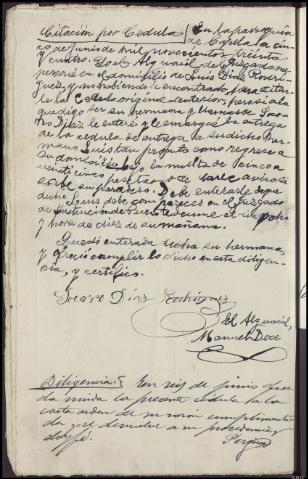 Citación por Cedula / En la parroquia
de Capela a cin
co de junio de mil novecientos treinta
y cuatro. Yo el Alguacil del Juzgado me
personé en el domicilio de Luis Díaz Rodri
guez, y no habiendo encontrado para citar
le la Cedula origine anterior, personada
que dijo ser su hermana y llamarse Soca
rro Díaz le enteré y le encargué la entrega
de la cedula de entrega a su dicho her
mano Luis tan pronto como regrese a
su domicilio bajo la multa de cinco a
veinticinco pesetas de darle aviso si
sabe su paradero. Debe enterarle de que
dicho Luis debe comparecer en el Juzgado
de Instrucción de Puentedeume el dia ocho
y hora de diez de su mañana.
Quedó enterada dicha su hermana,
y ofreció cumplir lo dicho en esta diligen
cia, y certifico.
Socarro Díaz Rodriguez
El Alguacil,
Manuel Doce
Diligencia: En seis de junio queda
da unida la presente cedula la la
carta orden de su razón cumplimenta
da que devuelve a su procedencia
doy fé.